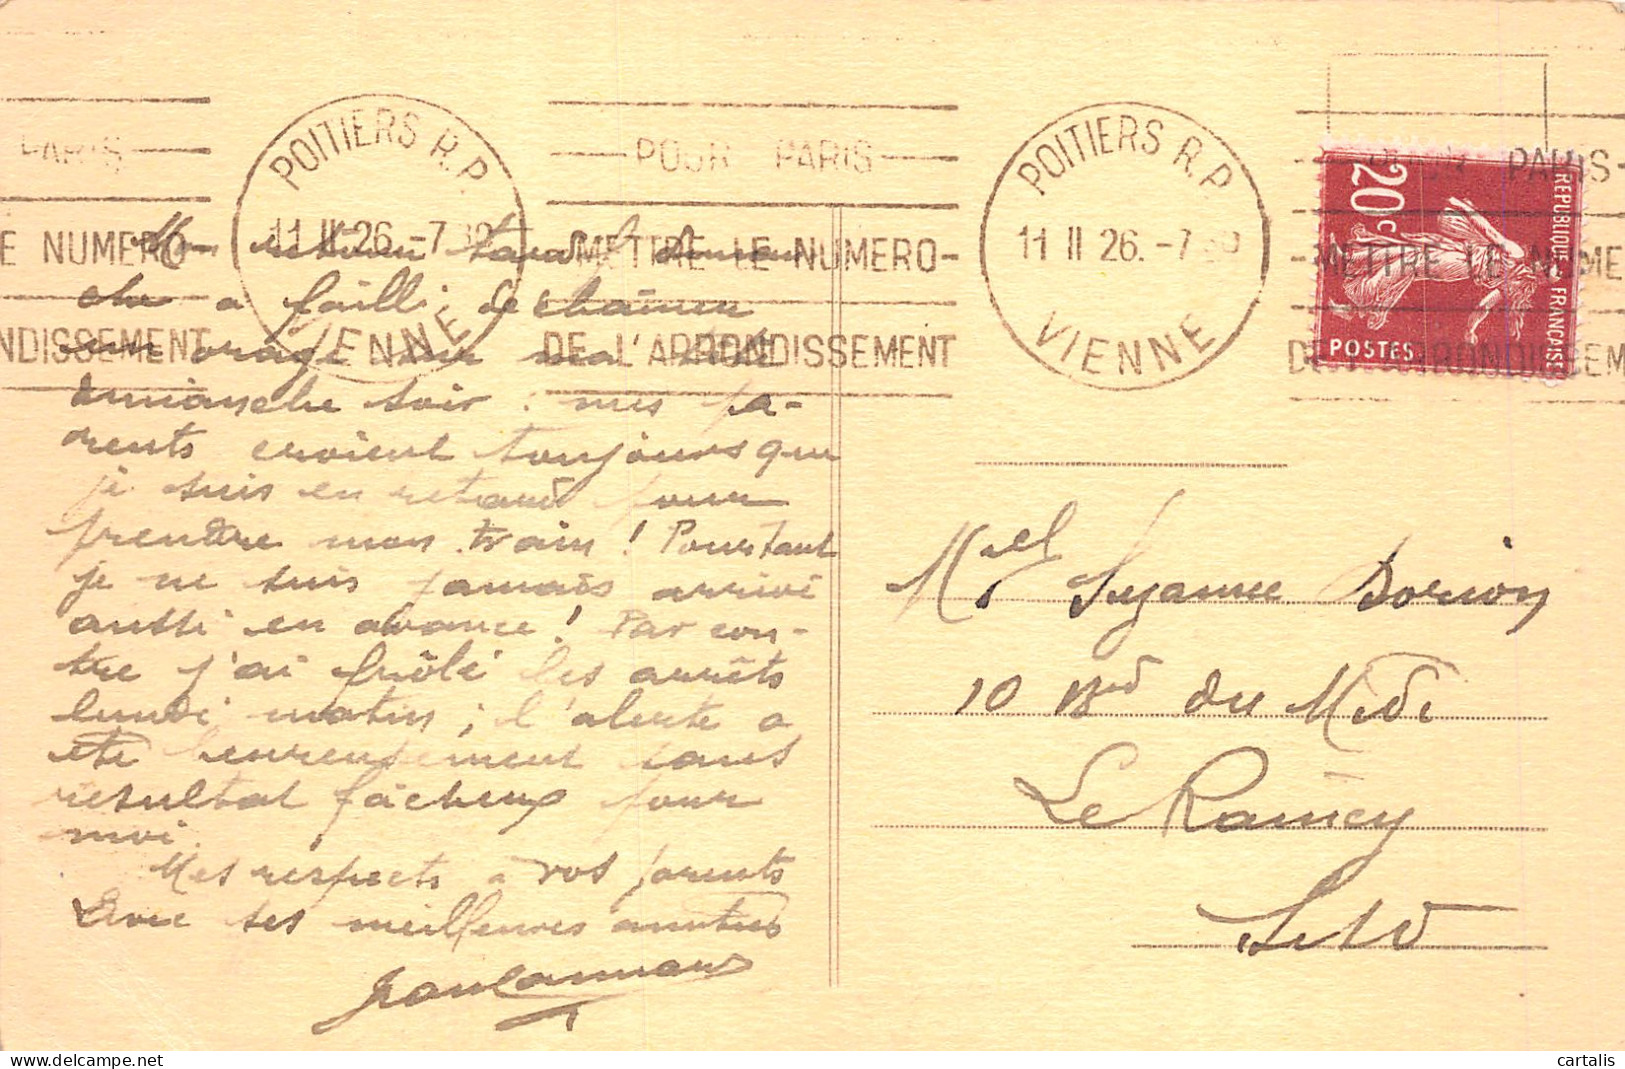 PARIS
POITIERS R.P.
POUR PARIS
POITIERS R.P.
POUR PARIS
E NUMERO
11 II 26. -7 30
METTRE LE NUMERO
11 II 26. -7 30
METTRE LE NUME
NDISSEMENT
VIENNE
DE L'ARRONDISSEMENT
VIENNE
DE L'ARRONDISSEM
20c
REPUBLIQUE FRANÇAISE
POSTES
Mon retour tardif diman
che a failli déchaîner
un orage sur ma tête
dimanche soir : mes pa-
rents croient toujours que
je suis en retard pour
prendre mon train ! Pourtant
je ne suis jamais arrivé
aussi en avance ! Par con-
tre j'ai frôlé les arrêts
lundi matin ; l'alerte a
été heureusement sans
résultat fâcheux pour
moi.
Mes respects à vos parents
Avec ses meilleures amitiés
Mel Suzanne Dorion
10 Bd du Midi
Le Raincy
S et O
cartalis